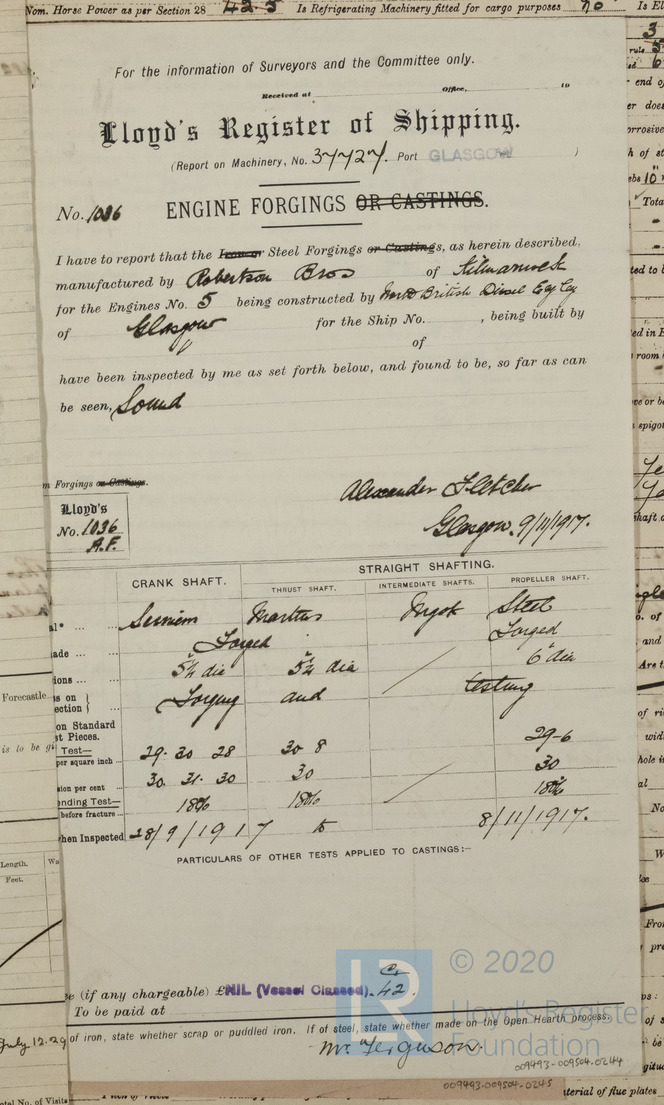 Nom. Horse Power as per Section 28 42.5 Is Refrigerating Machinery fitted for cargo purposes No Is El
For the information of Surveyors and the Committee only.
Received at Office, 19
Lloyd's Register of Shipping.
(Report on Machinery, No. 37727. Port GLASGOW )
No. 1036 ENGINE FORGINGS OR CASTINGS.
I have to report that the Iron or Steel Forgings or Castings, as herein described,
manufactured by Robertson Bros of Kilmarnock
for the Engines No. 5 being constructed by North British Diesel Eng Coy
of Glasgow for the Ship No. , being built by
of
have been inspected by me as set forth below, and found to be, so far as can
be seen, Sound
m Forgings or Castings.
Alexander Fletcher
Lloyd's
No. 1036
A.F.
Glasgow. 9/11/1917.
STRAIGHT SHAFTING.
CRANK SHAFT. THRUST SHAFT. INTERMEDIATE SHAFTS. PROPELLER SHAFT.
al* Siemens Martins Ingot Steel
ade Forged Forged
ions 5¼ dia 5¼ dia 6" dia
s on } Forging and testing
ection }
on Standard
st Pieces.
Test—
per square inch 29. 30 28 30 8 29-6
sion per cent 30. 31. 30 30 30
ending Test— 180° 180° 180°
before fracture
hen Inspected 28/9/1917 to 8/11/1917.
PARTICULARS OF OTHER TESTS APPLIED TO CASTINGS:—
e (if any chargeable) £ NIL (Vessel Classed). 42.
To be paid at
of iron, state whether scrap or puddled iron. If of steel, state whether made on the Open Hearth process.
Mr Ferguson.
© 2020
LR
Lloyd's Register
Foundation
009493-009504-0244
009493-009504-0245
Forecastle
is to be gi
Length.
Feet.
July 12.29
tal No. of Visits
terial of flue plates